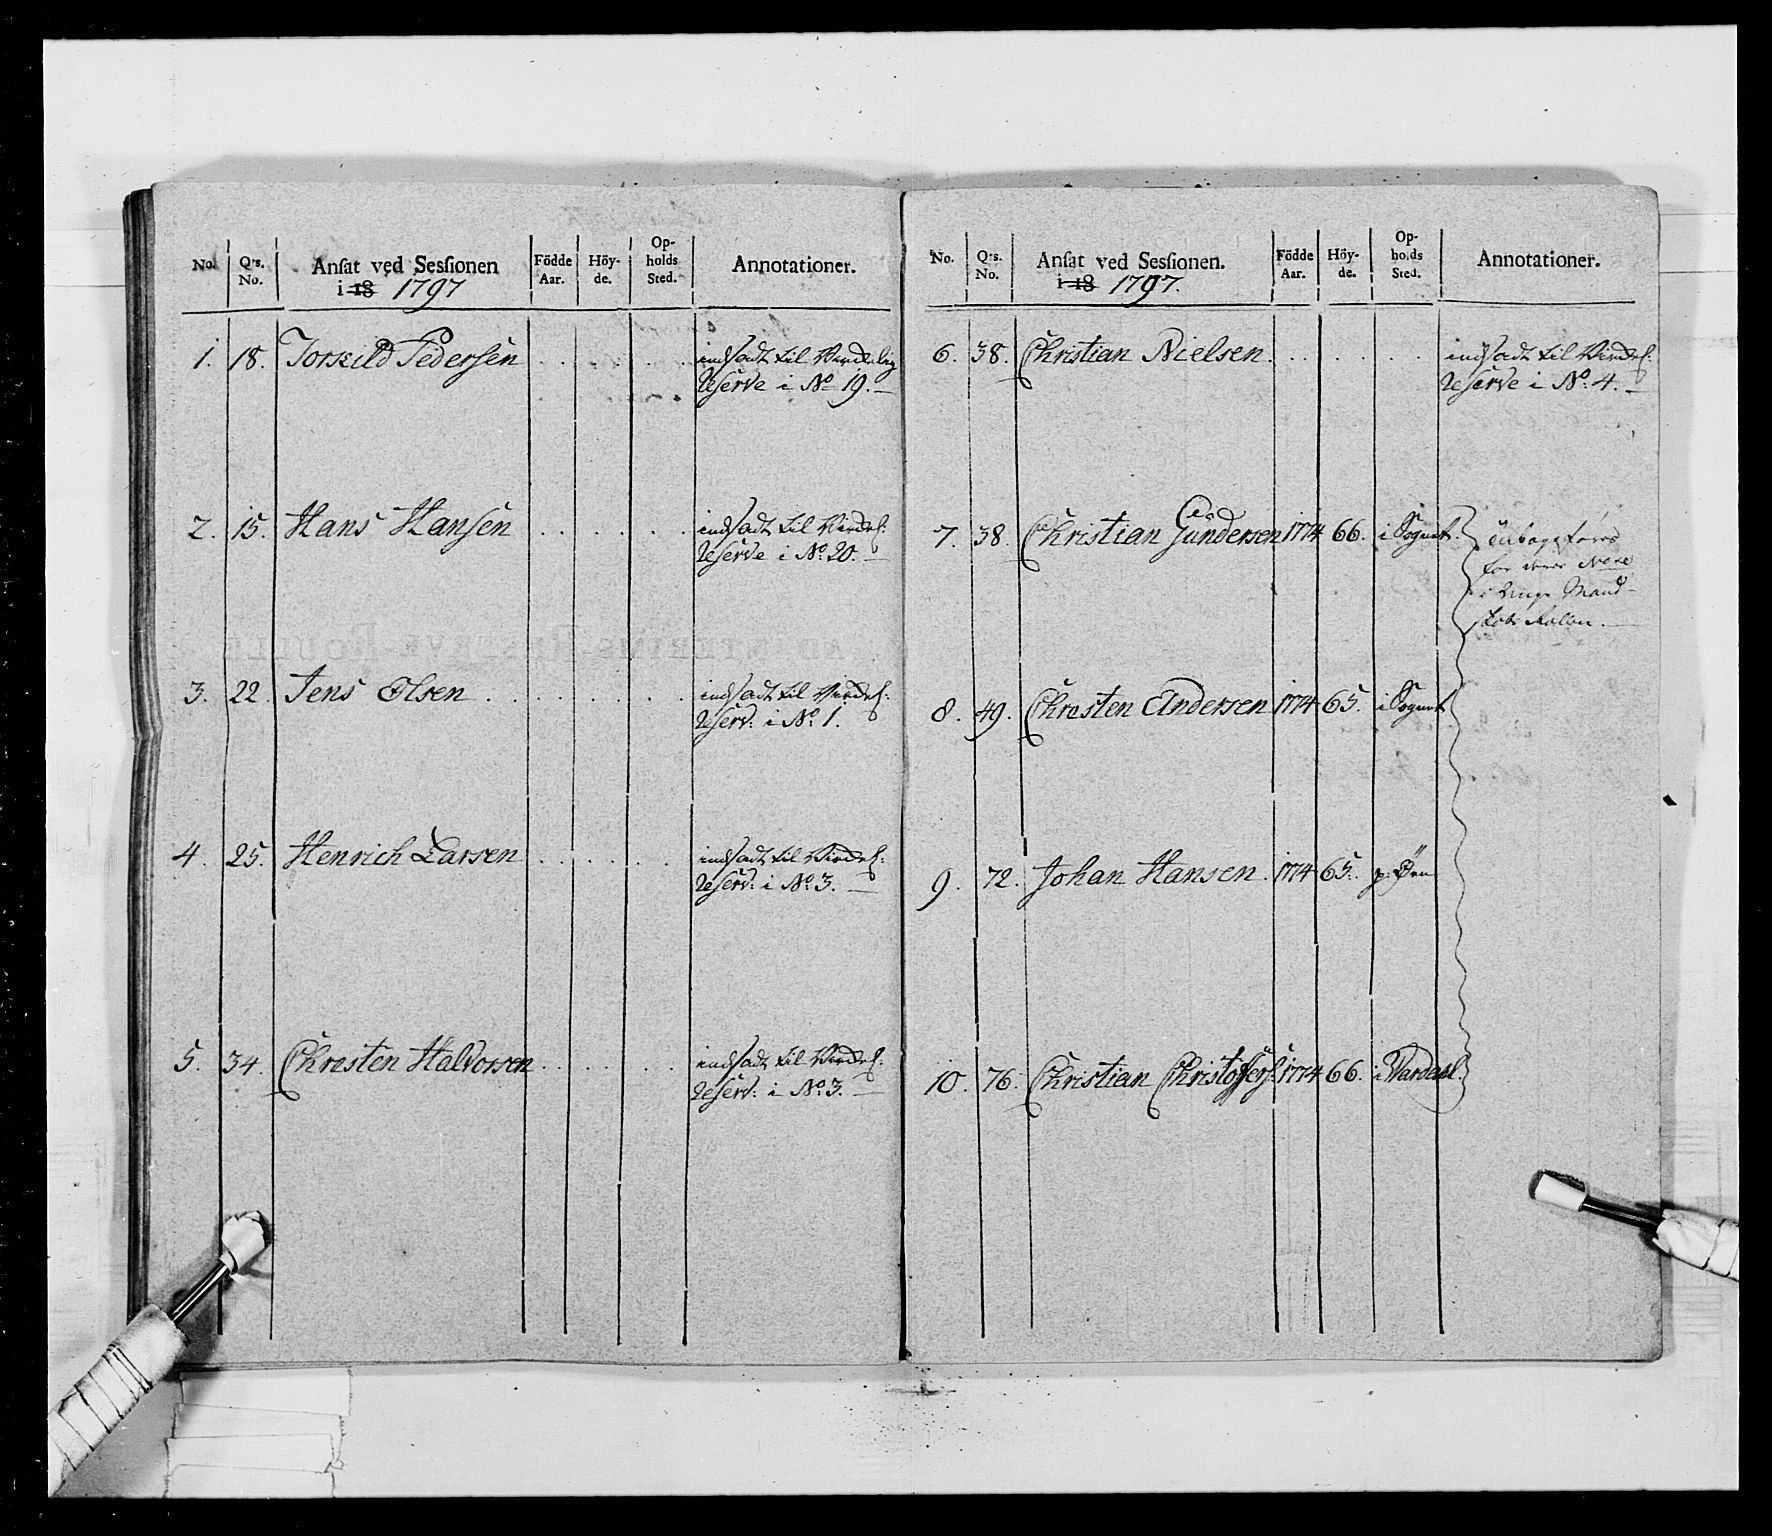 No. Qrs. No. Ansat ved Sessionen i 18 1797 Födde Aar. Höy-de. Op-holds Sted. Annotationer.
1. 18. Torkild Pedersen indsadt til Virkelig
Reserve i No 19.
2. 15. Hans Hansen indsadt til Virkel:
Reserve i No 20.
3. 22. Jens Olsen indsadt til Virkel:
Reserv: i No 1.
4. 25. Henrich Larsen indsadt til Virkel:
Reserv: i No 3.
5. 34. Christen Halvorsen indsadt til Virkel:
Reserv: i No 3.
No. Qrs. No. Ansat ved Sessionen. i 18 1797. Födde Aar. Höy-de. Op-holds Sted. Annotationer.
6. 38. Christian Nielsen indsadt til Virkel:
Reserve i No: 4.
7. 38. Christian Gundersen 1774 66. i Sognet. tilbageføres
for deres
i Unge Mand-
skabs Rollen.
8. 49. Christen Andersen 1774 65. i Sognet
9. 72. Johan Hansen 1774 65. p: Øen
10. 76. Christian Christophers: 1774 66. i Wardahl.